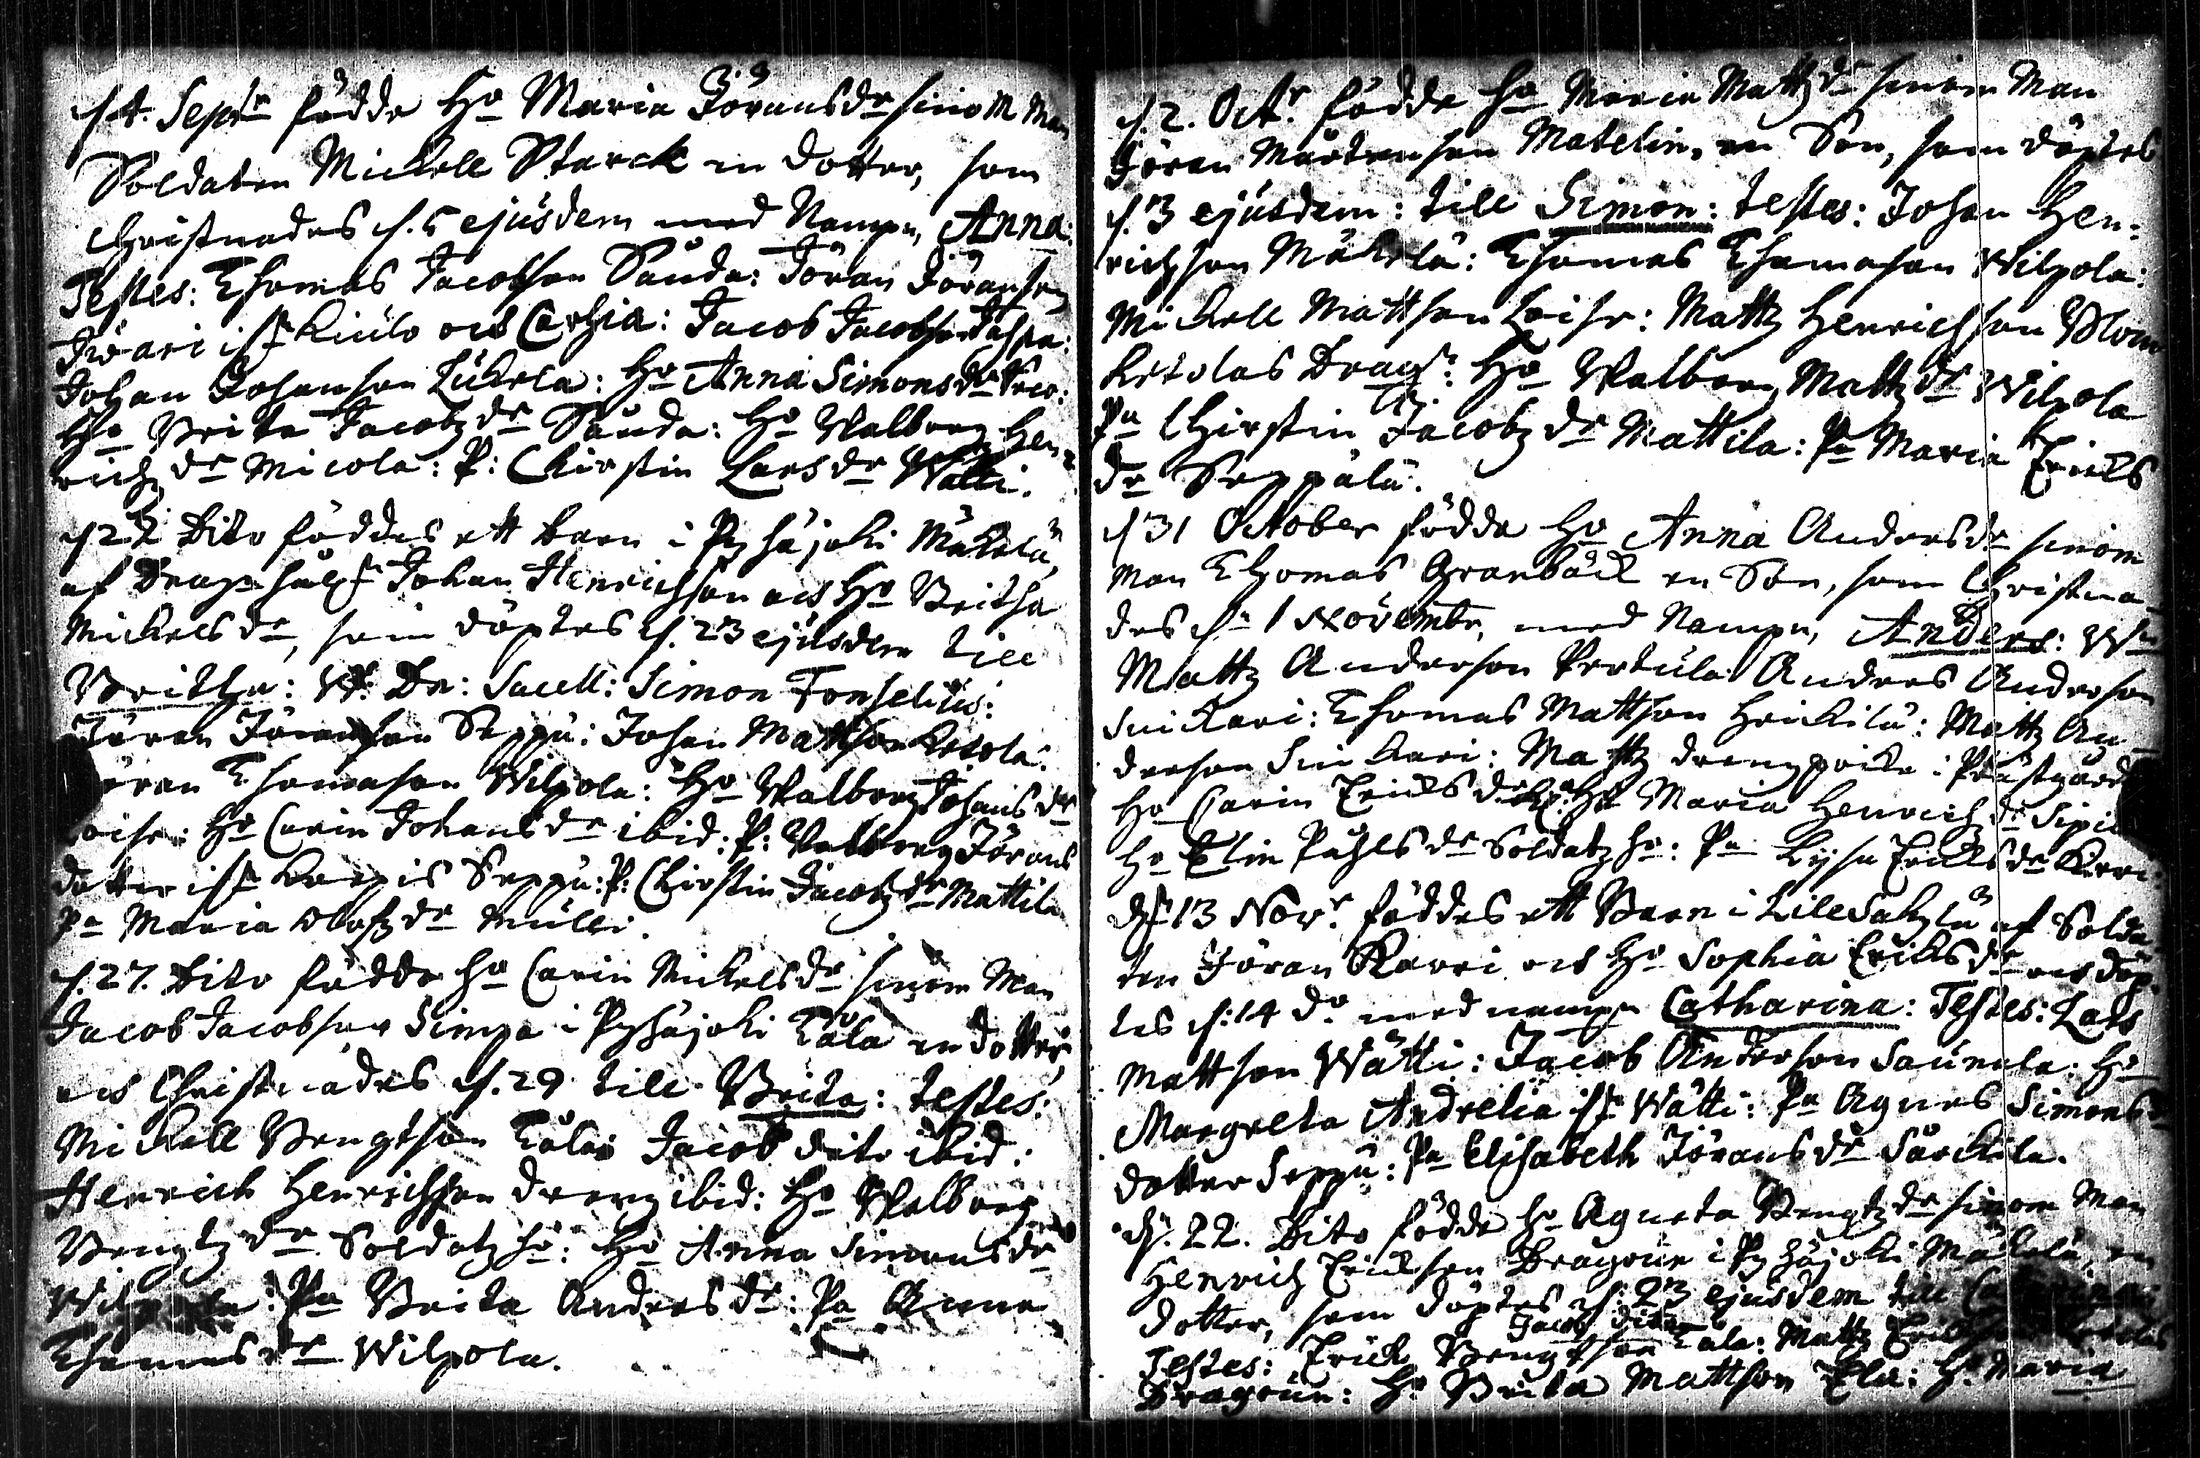 d. 4. Septr födde Ho Maria Jöransdr sinom Man
Soldaten Mickell Starck en dotter, som
Christnades d. 5 ejusdem med Nampn, Anna:
Testes: Thomas Jacobson Sauda: Jöran Jöranson
och Carhia: Jacob Jacobson
Johan Johanson Lukela: Ho Anna Simonsdr
Ho Brita Jacobzdr Sauda: Ho Walborg Hen-
richzdr Micola: P: Chirstin Larsdr Wätti.
d. 22 Dito föddes ett barn i Pyhäjoki Mäkelä,
af Johan Henrichson och Ho Britha
Mickelsdr, som döptes d. 23 ejusdem till
Britha: W. Dn: Sacell: Simon Forselius:
Jöran Jöranson Seppä: Johan Mattson Ketola:
Jöran Thomason Wilpola: Ho Walborg Johansdr
Loise: Ho Carin Johansdr ibid: P: Walborg Jörans
dotter ifr Seppä: P: Chirstin Jacobzdr Mattila
Pa Maria Olofzdr Mulli.
d. 27. Dito födde Ho Carin Mickelsdr sinom Man
Jacob Jacobson Simpa i Pyhäjoki Kåla en dotter,
och Christnades d. 29 till Brita: Testes:
Mickell Bengtson Kåla: Jacob dito ibid:
Henrich Henrichson dreng ibid: Ho Walborg
Bengtzdr Soldatz ho: Ho Anna Simonsdr
Wilpola: Pa Brita Andersdr: Pa Anna
Thomasdr Wilpola.
d. 2. Octr. födde Ho Maria Mattzdr sinom Man
Jöran Mårtenson Matelin, en Son, som döptes
d. 3 ejusdem: till Simon: Testes: Johan Hen-
richson Mäkelä: Thomas Thomason Wilpola:
Mickell Mattson Loise: Mattz Henrichson Blom
Ketolas Drag: Ho Walborg Mattzdr Wilpola
Pa Chirstin Jacobzdr Mattila: Pa Maria Ericks
dr Seppälä.
d 31 October födde Ho Anna Andersdr sinom
Man Thomas Granbäck en Son, som Christna-
des dn 1 Novembr, med Nampn, Anders: Wn
Mattz Anderson Pertula: Anders Anderson
Suickari: Thomas Mattson Heickilä: Mattz An-
derson Suickari: Mattz drengpoike i Prästgård
Ho Carin Ericksdr Ho Maria Henrichzdr
Ho Elin Påhlsdr Soldatz ho: Pa Lysa Ericksdr
d 13 Novr. föddes ett Barn i af Solda-
ten Jöran Karri och Ho Sophia Ericksdr och döp-
tes d. 14 do med nampn Catharina: Testes: Lars
Mattson Wätti: Jacob Anderson Saunela: Ho
Margreta Andrelia ifr Wätti: Pa Agnes Simons
dotter Seppä: Pa Elisabeth Jöransdr Särckilä.
d. 22. Dito födde Ho Agneta Bengtzdr sinom Man
Henrich Erickson Dragoun i Pyhäjoki Mäkelä, en
dotter, som döptes d. 23 ejusdem till
Jacob dito
Testes: Erich Bengtson Kåla: Mattz Erickson
Dragoun: Ho Brita Mattson Ela: Ho Maria